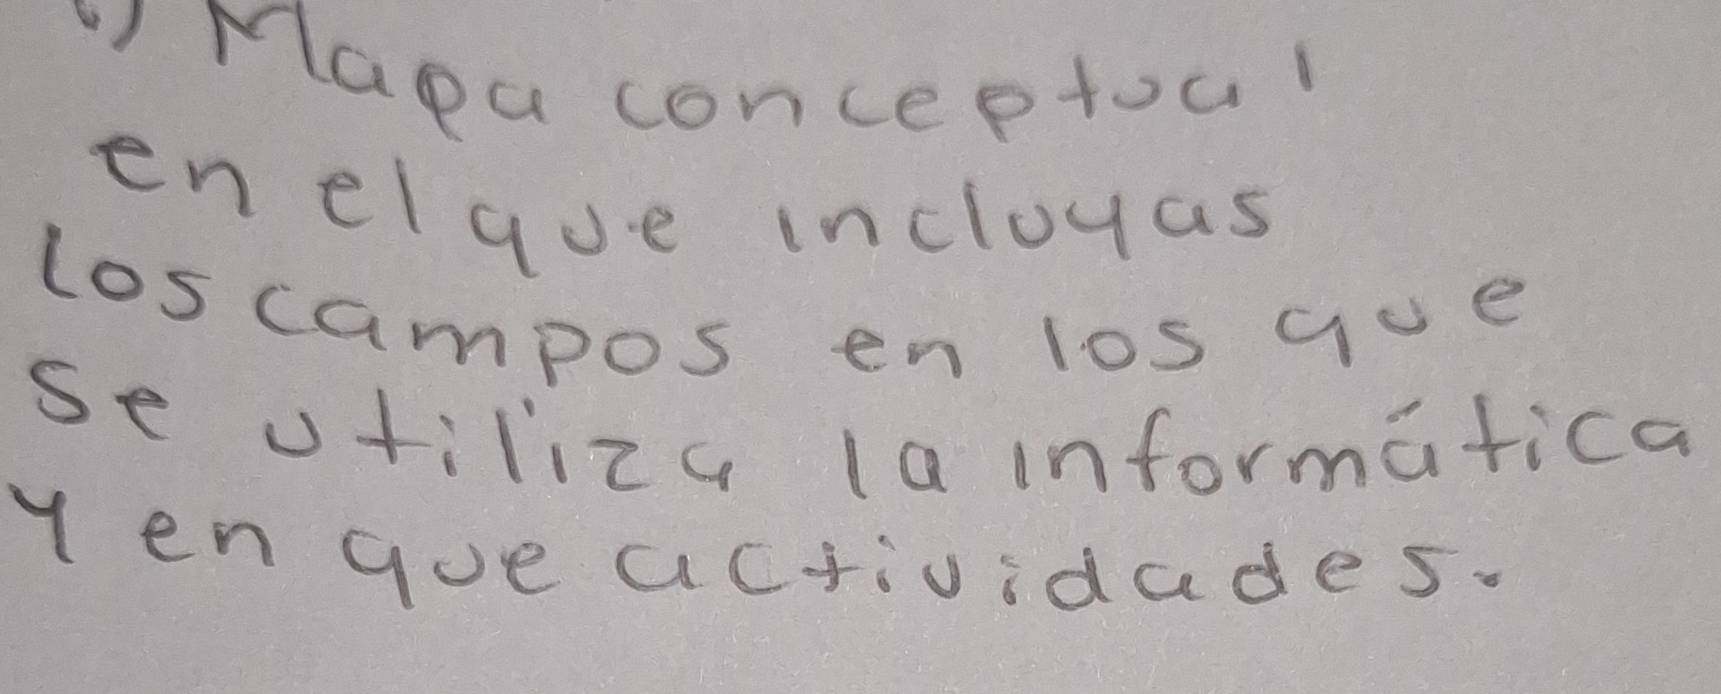 Mapa conceptual
en el que incluyas
los campos en los que
se utiliza la informática
y en que actividades.